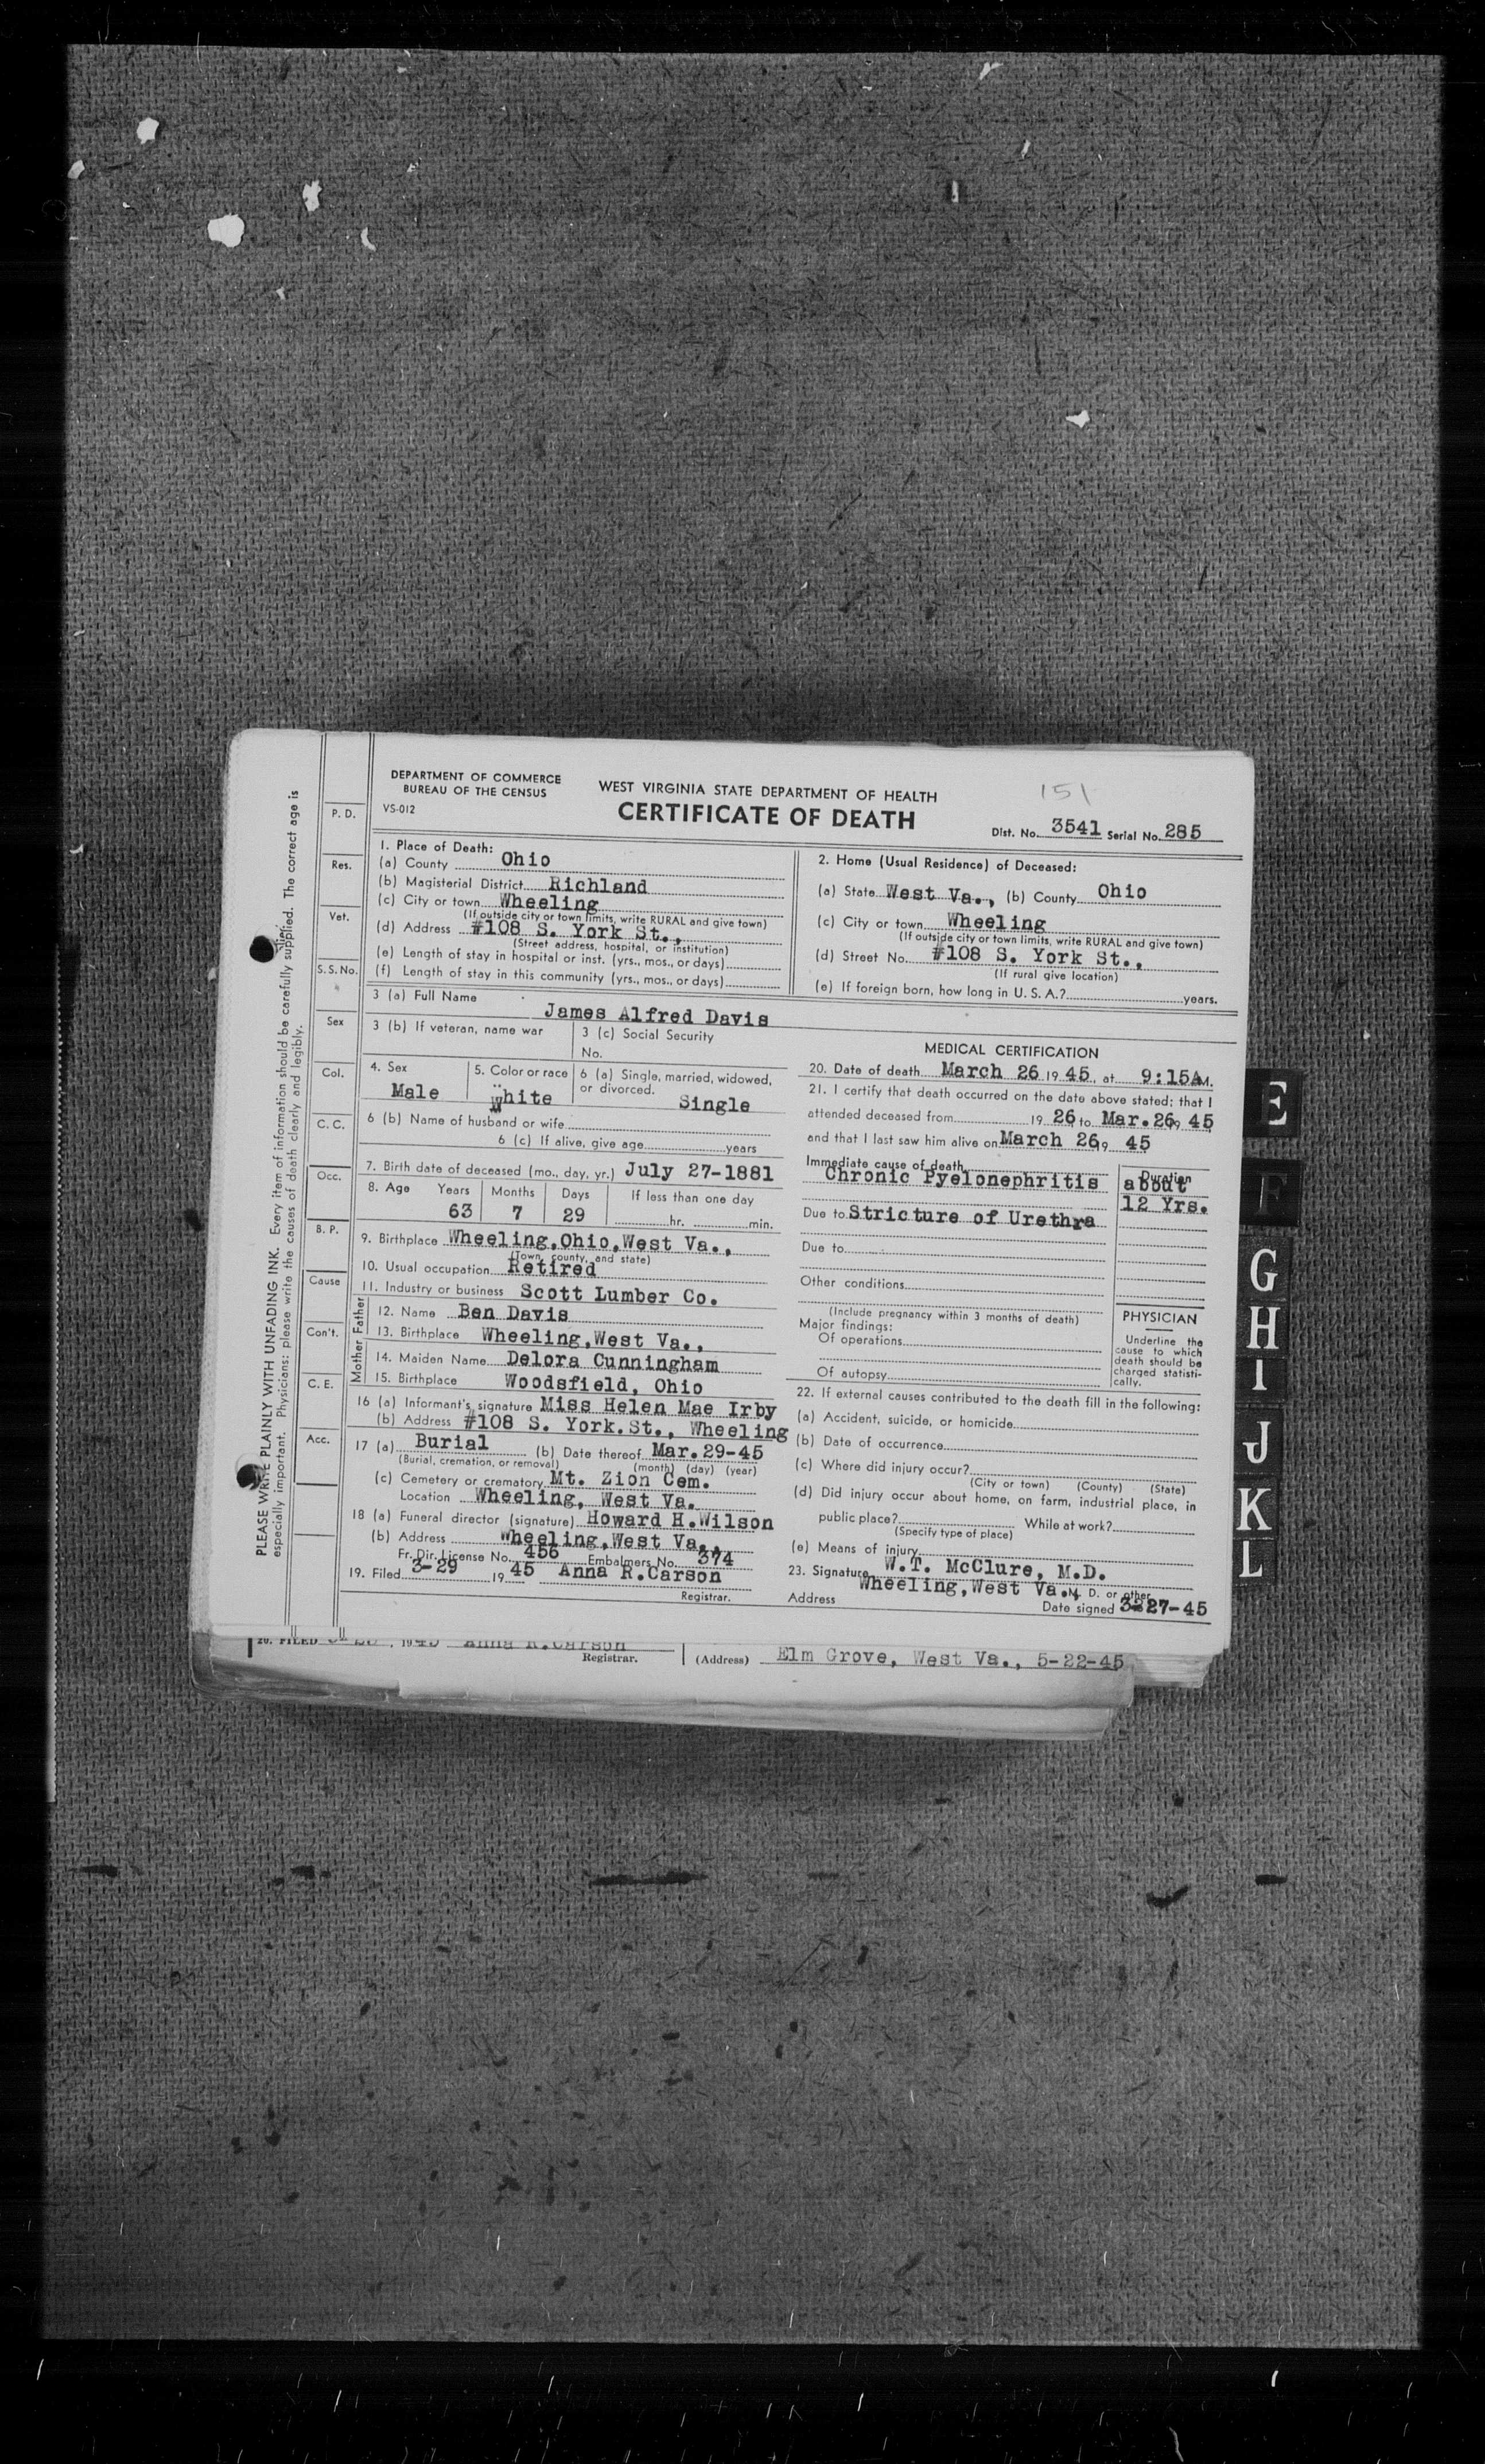 DEPARTMENT OF COMMERCE
BUREAU OF THE CENSUS
VS-012
WEST VIRGINIA STATE DEPARTMENT OF HEALTH
CERTIFICATE OF DEATH
151
Dist. No. 3541 Serial No. 285
PLEASE WRITE PLAINLY WITH UNFADING INK. Every item of information should be carefully supplied. The correct age is
especially important. Physicians: please write the causes of death clearly and legibly.
P. D.
Res.
Vet.
S. S. No.
Sex
Col.
C. C.
Occ.
B. P.
Cause
Con't.
C. E.
Acc.
1. Place of Death:
(a) County Ohio
(b) Magisterial District Richland
(c) City or town Wheeling
(If outside city or town limits, write RURAL and give town)
(d) Address #108 S. York St.,
(Street address, hospital, or institution)
(e) Length of stay in hospital or inst. (yrs., mos., or days)
(f) Length of stay in this community (yrs., mos., or days)
2. Home (Usual Residence) of Deceased:
(a) State West Va., (b) County Ohio
(c) City or town Wheeling
(If outside city or town limits, write RURAL and give town)
(d) Street No. #108 S. York St.,
(If rural give location)
(e) If foreign born, how long in U. S. A.? years.
3 (a) Full Name James Alfred Davis
3 (b) If veteran, name war
3 (c) Social Security
No.
4. Sex
Male
5. Color or race
White
6 (a) Single, married, widowed,
or divorced. Single
6 (b) Name of husband or wife
6 (c) If alive, give age years
7. Birth date of deceased (mo., day, yr.) July 27-1881
8. Age Years Months Days If less than one day
63 7 29 hr. min.
9. Birthplace Wheeling, Ohio, West Va.,
(Town, county, and state)
10. Usual occupation Retired
11. Industry or business Scott Lumber Co.
Father
12. Name Ben Davis
13. Birthplace Wheeling, West Va.,
Mother
14. Maiden Name Delora Cunningham
15. Birthplace Woodsfield, Ohio
16 (a) Informant's signature Miss Helen Mae Irby
(b) Address #108 S. York. St., Wheeling
17 (a) Burial (b) Date thereof Mar. 29-45
(Burial, cremation, or removal) (month) (day) (year)
(c) Cemetery or crematory Mt. Zion Cem.
Location Wheeling, West Va.
18 (a) Funeral director (signature) Howard H. Wilson
(b) Address Wheeling, West Va.,
Fr. Dir. License No. 456 Embalmers No. 374
19. Filed 3-29 19 45 Anna R. Carson
Registrar.
MEDICAL CERTIFICATION
20. Date of death March 26 19 45, at 9:15A M.
21. I certify that death occurred on the date above stated; that I
attended deceased from 19 26 to Mar. 26, 19 45
and that I last saw him alive on March 26 19 45
Immediate cause of death Duration
Chronic Pyelonephritis about
12 Yrs.
Due to Stricture of Urethra
Due to
Other conditions
(Include pregnancy within 3 months of death)
Major findings:
Of operations
Of autopsy
PHYSICIAN
Underline the
cause to which
death should be
charged statisti-
cally.
22. If external causes contributed to the death fill in the following:
(a) Accident, suicide, or homicide
(b) Date of occurrence
(c) Where did injury occur?
(City or town) (County) (State)
(d) Did injury occur about home, on farm, industrial place, in
public place? While at work?
(Specify type of place)
(e) Means of injury
23. Signature W.T. McClure, M.D.
M. D. or other
Address Wheeling, West Va.,
Date signed 3-27-45
20. FILED , 1945 Anna R. Carson
Registrar.
(Address) Elm Grove, West Va., 5-22-45
E
F
G
H
I
J
K
L